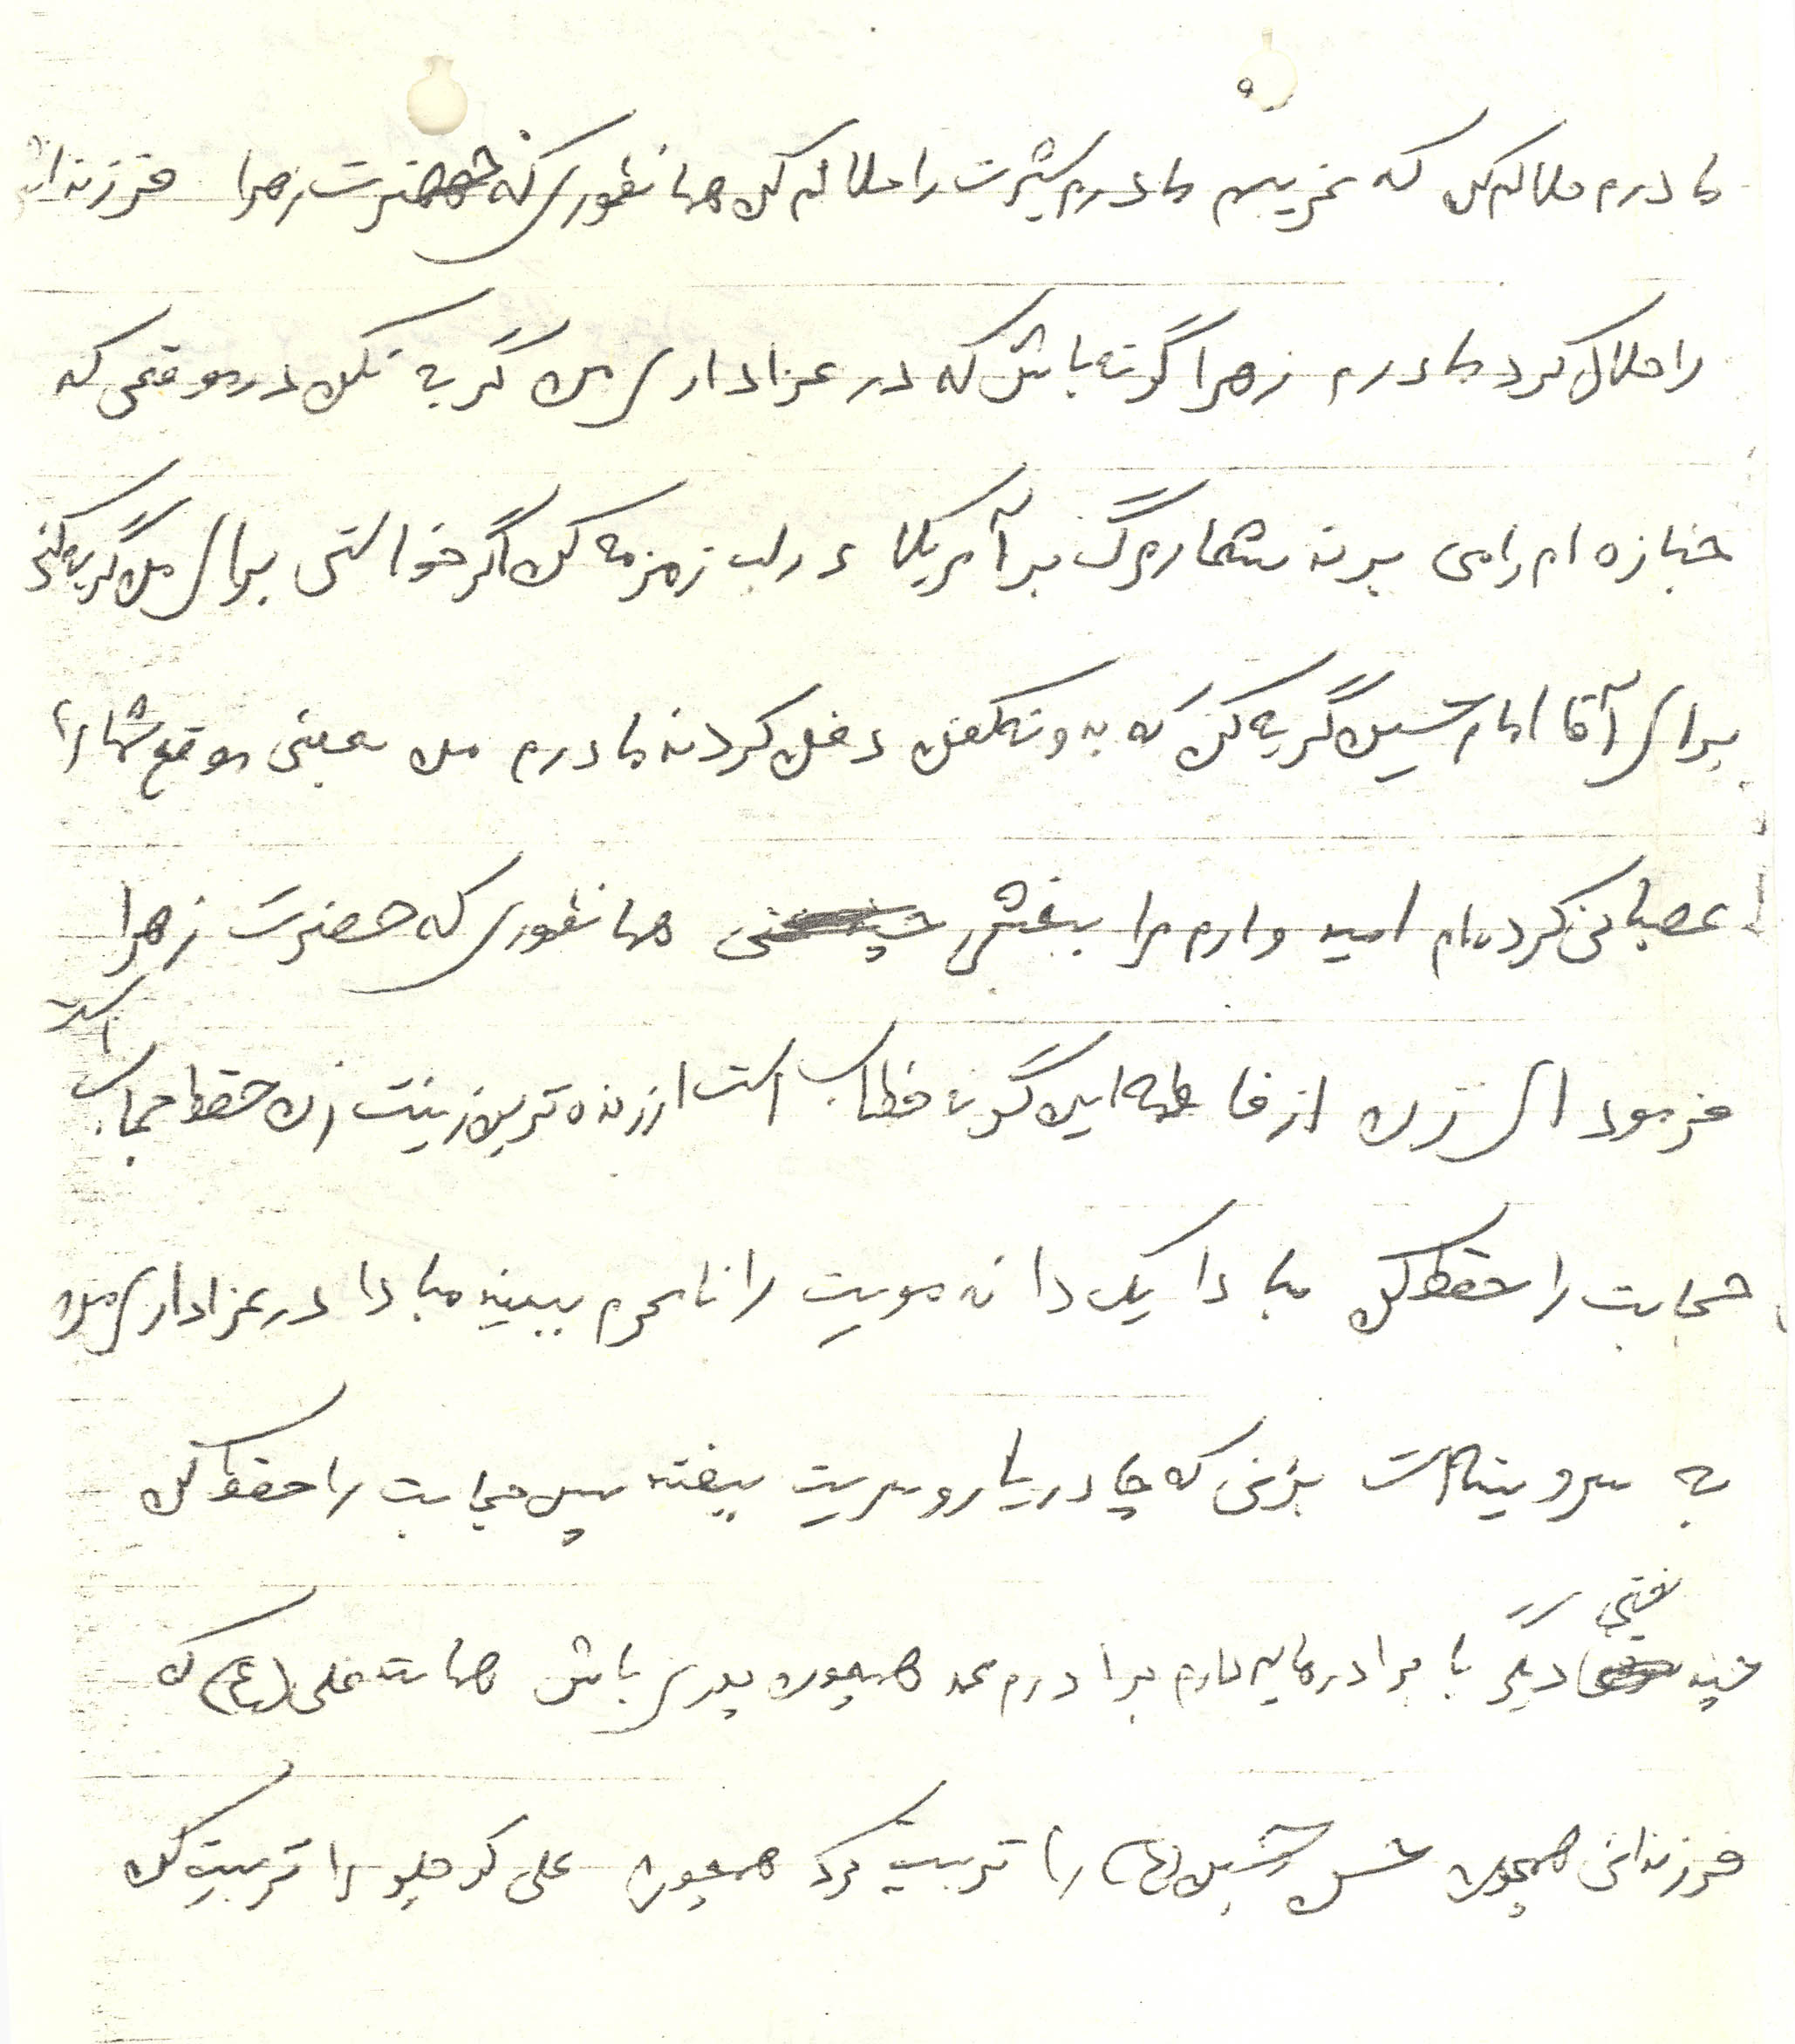 مادرم حلالم کن که غریبم مادرم شیرت را حلالم کن همانطوری که حضرت زهرا فرزندانش
را حلال کرد مادرم زهرا گونه باش که در عزاداری من گریه نکن در موقعی که
جنازه ام را می برند شعار مرگ بر آمریکا در لب زمزمه کن اگر خواستی برای من گریه کنی
برای آقا امام حسین گریه کن که بدون کفن دفن کردند مادرم من بعضی موقع شما را
عصبانی کرده ام امید وارم مرا ببخشی همانطوری که حضرت زهرا
فرمود ای زن از فاطمه این گونه خطاب است ارزنده ترین زینت زن حفظ حجاب است
حجابت را حفظ کن مبادا یک دانه مویت را نامحرم ببیند مبادا در عزاداری من
به سر و سینه ات بزنی که چادر یا روسریت بیفتد پس حجابت را حفظ کن
چند نصیحتی دیگر با برادرهایم دارم برادرم محمد همچون پدری باش همانند علی (ع) که
فرزندانی همچون حسن حسین (ع) را تربیت کرد همچون علی کوچلو را تربیت کن